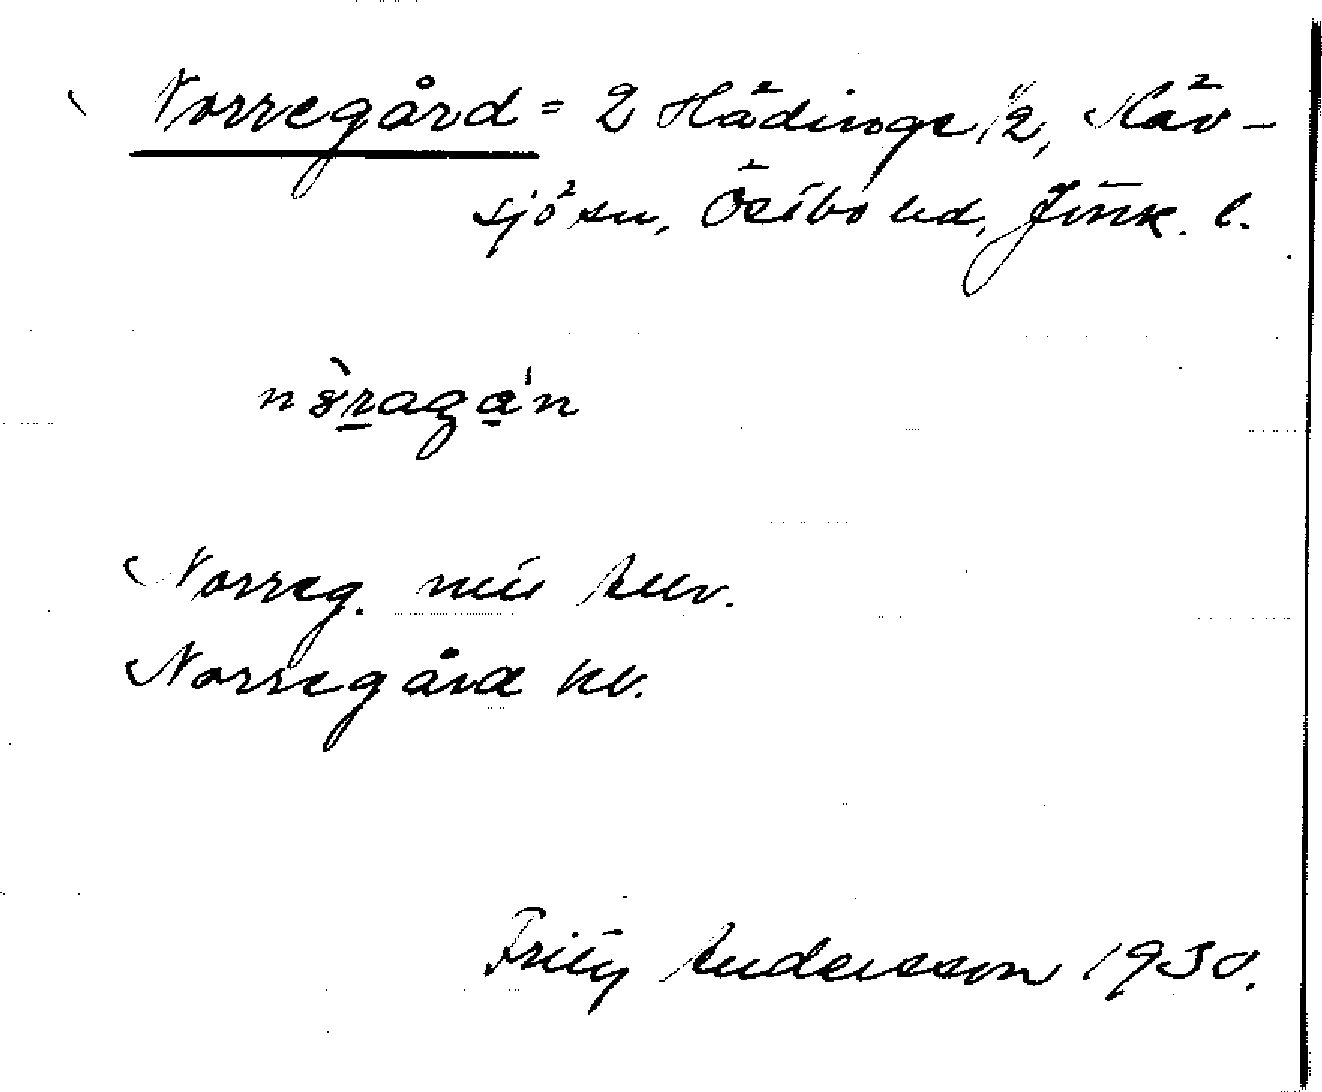 Norregård = 2 Hädinge 1/2, Näv-
sjö sn, Östbo hd, Jönk. l.
nəragán
Norreg.
Norregård kb.
Fritz Andersson 1930.